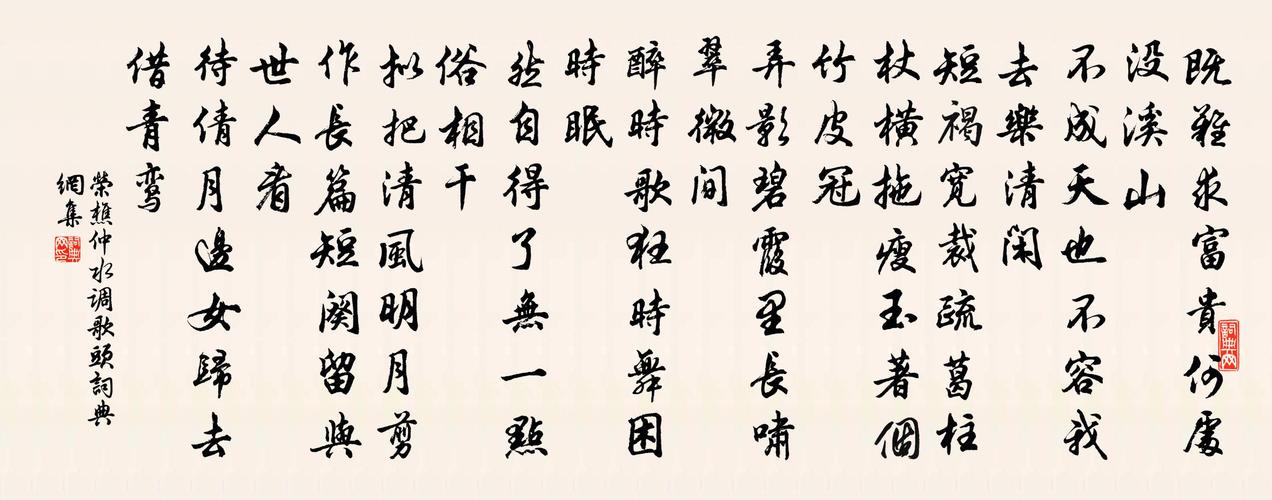 既難求富貴何處
没溪山
不成天也不容我
去樂清閑
短褐寬裁疏葛柱
杖橫拖瘦玉著個
竹皮冠
弄影碧霞里長嘯
翠微間
醉時歌狂時舞困
時眠
然自得了無一點
俗相干
拟把清風明月剪
作長篇短闋留與
世人看
待倩月邊女歸去
借青鸾
榮樵仲水调歌頭詞典
網集
詞典网